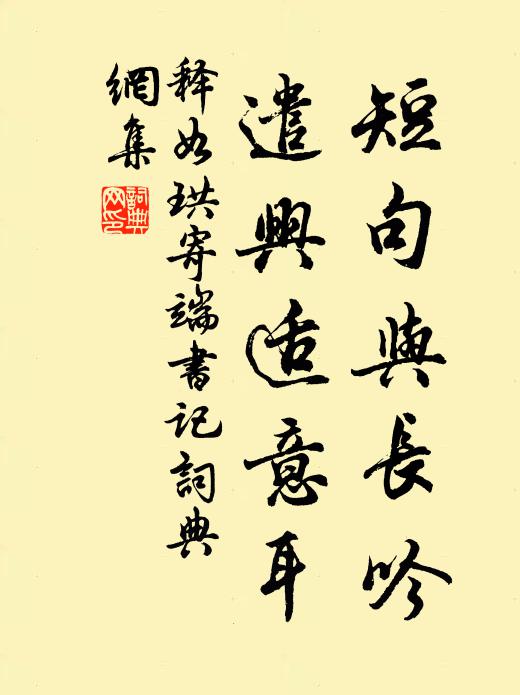 短句與長吟
遣興适意耳
释如珙寄端書记詞典
網集
詞典网印